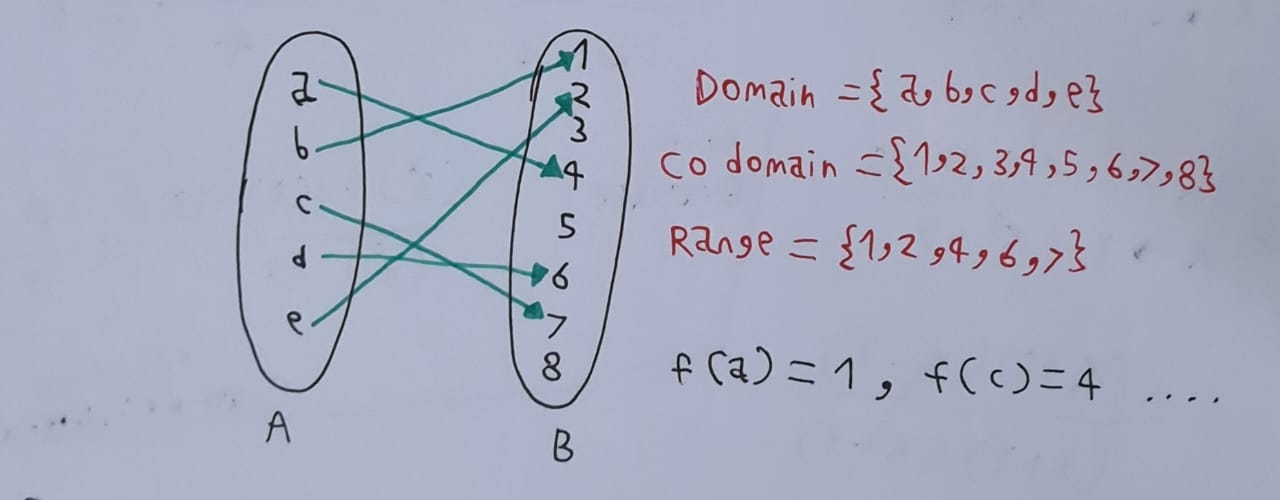 a
b
c
d
e
A
1
2
3
4
5
6
7
8
B
Domain = {a, b, c, d, e}
Co domain = {1, 2, 3, 4, 5, 6, 7, 8}
Range = {1, 2, 4, 6, 7}
f(a) = 1, f(c) = 4 ....